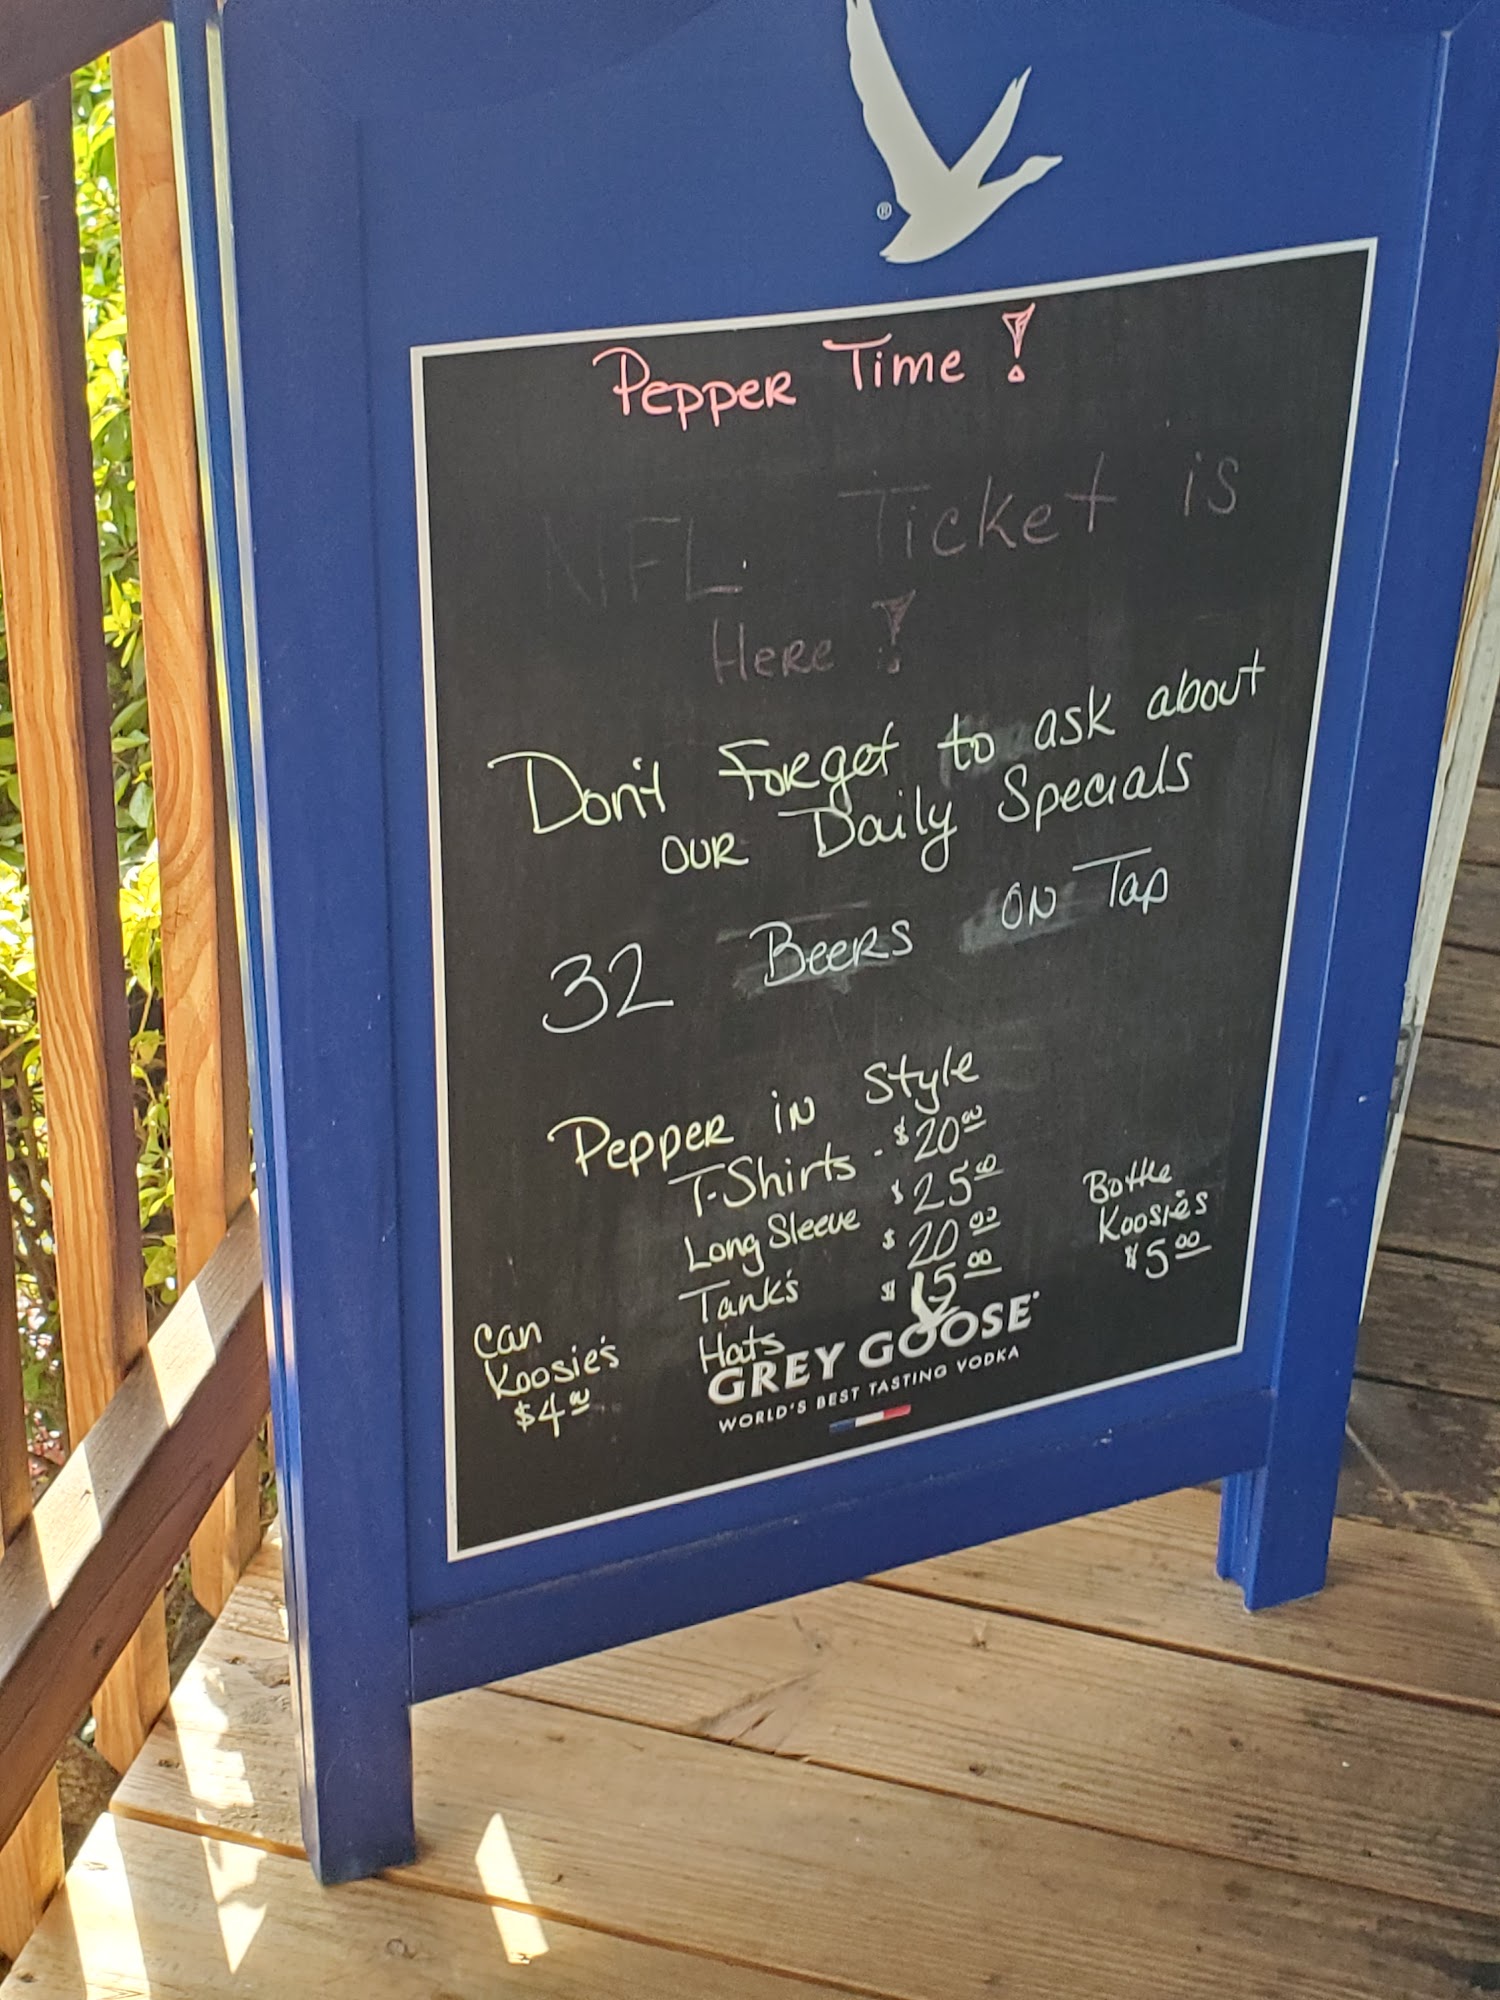 ®
Pepper Time!
NFL Ticket is
Here!
Don't Forget to ask about
our Daily Specials
32 Beers on Tap
Pepper in Style
T-Shirts - $20.00
Long Sleeve $25.00
Tank's $20.00
Hats $15.00
Bottle
Koosie's
$5.00
Can
Koosie's
$4.00
GREY GOOSE
WORLD'S BEST TASTING VODKA